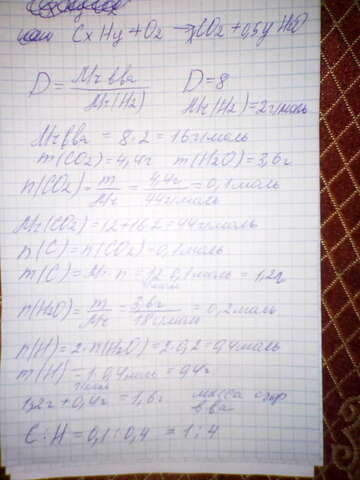 CxHy + O2 → xCO2 + 0,5y H2O
D = Mr вва / Mr(H2) D = 8
Mr(H2) = 2г/моль
Mr вва = 8·2 = 16г/моль
m(CO2) = 4,4г m(H2O) = 3,6г
n(CO2) = m / Mr = 4,4г / 44г/моль = 0,1моль
Mr(CO2) = 12+16·2 = 44г/моль
n(C) = n(CO2) = 0,1моль
m(C) = M · n = 12 г/моль · 0,1моль = 1,2г
n(H2O) = m / Mr = 3,6г / 18г/моль = 0,2моль
n(H) = 2·n(H2O) = 2·0,2 = 0,4моль
m(H) = 1 г/моль · 0,4моль = 0,4г
1,2г + 0,4г = 1,6г масса сгор
в ва
C : H = 0,1 : 0,4 = 1 : 4